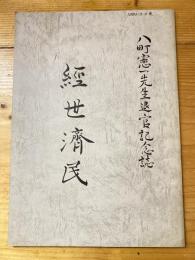 八町憲一先生退官記念誌
經世濟民